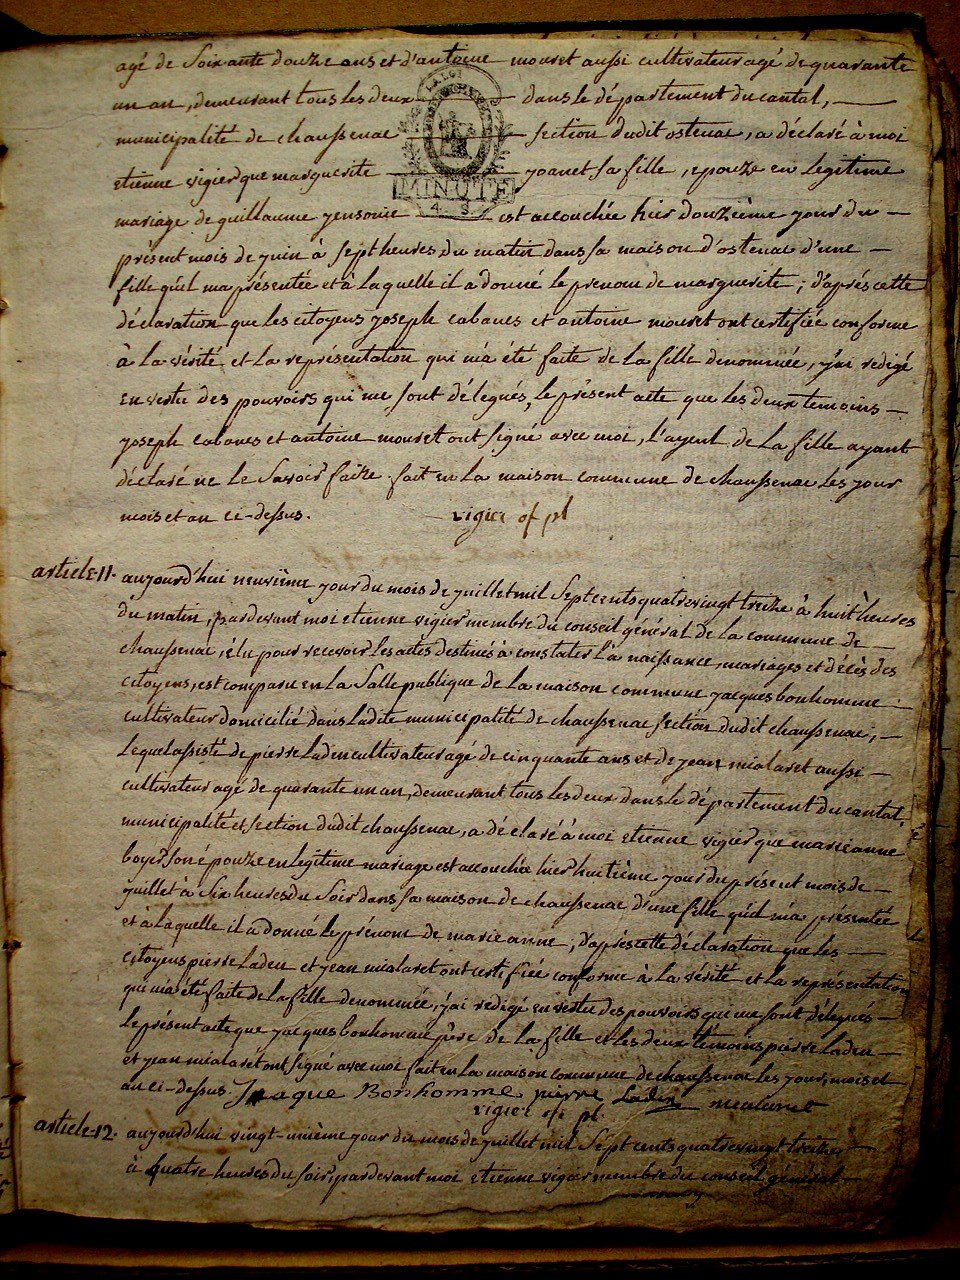 agé de soixante douze ans et d'antoine mouret aussi cultivateur agé de quarante
un an, demeurant tous les deux dans le département du cantal,
municipalité de chaussenac section dudit ostenac, a déclaré à moi
etienne vigier que marguerite joanet sa fille, epouze en legitime
mariage de guillaume jensonie est accouchée hier douzième jour du
présent mois de juin à sept heures du matin dans sa maison d'ostenac d'une
fille qu'il m'a présentée et à laquelle il a donné le prenom de marguerite; d'après cette
déclaration que les citoyens joseph cabanes et antoine mouret ont certifiée conforme
à la vérité et la représentation qui m'a été faite de la fille denommée, j'ai redigé
en vertu des pouvoirs qui me sont délegués, le présent acte que les deux temoins
joseph cabanes et antoine mouret ont signé avec moi, l'ayeul de la fille ayant
déclaré ne le savoir faire. fait en la maison commune de chaussenac les jour
mois et an ci-dessus. vigier of pl
LA LOI
MINUTE
4 S
article 11. aujourd'hui neuvième jour du mois de juillet mil sept cents quatre vingt treize à huit heures
du matin, par devant moi etienne vigier membre du conseil général de la commune de
chaussenac, élu pour recevoir les actes destinés à constater la naissance, mariages et décès des
citoyens, est comparu en la salle publique de la maison commune jacques bonhomme
cultivateur domicilié dans ladite municipalité de chaussenac section dudit chaussenac,
lequel assisté de pierre laden cultivateur agé de cinquante ans et de jean mialaret aussi
cultivateur agé de quarante un an, demeurant tous les deux dans le département du cantal,
municipalité et section dudit chaussenac, a déclaré à moi etienne vigier que marie anne
boyer son épouze en legitime mariage est accouchée hier huitième jour du présent mois de
juillet à six heures du soir dans sa maison de chaussenac d'une fille qu'il m'a présentée
et à laquelle il a donné le prénom de marie anne; d'après cette déclaration que les
citoyens pierre laden et jean mialaret ont certifiée conforme à la vérité et la représentation
qui m'a été faite de la fille denommée, j'ai redigé en vertu des pouvoirs qui me sont délegués
le présent acte que jacques bonhomme père de la fille et les deux témoins pierre laden
et jean mialaret ont signé avec moi fait en la maison commune de chaussenac les jour, mois et
an ci-dessus. Jaque Bonhomme pierre Laden mialaret
vigier of. pl.
article 12. aujourd'hui vingt-unième jour du mois de juillet mil sept cents quatre vingt treize
à quatre heures du soir, par devant moi etienne vigier membre du conseil général